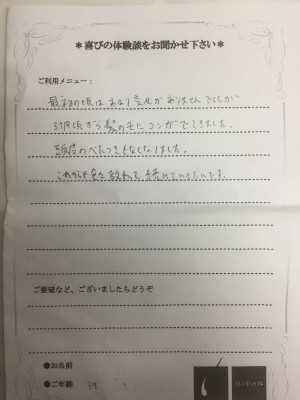 *喜びの体験談をお聞かせ下さい*
ご利用メニュー：
最初の頃はあまり変化がありませんでしたが
3ヶ月頃から髪の毛にコシがでてきました。
頭皮のべたつきもなくなりました。
これからも 続けていきたいです。
ご要望など、ございましたらどうぞ
●お名前
●ご年齢